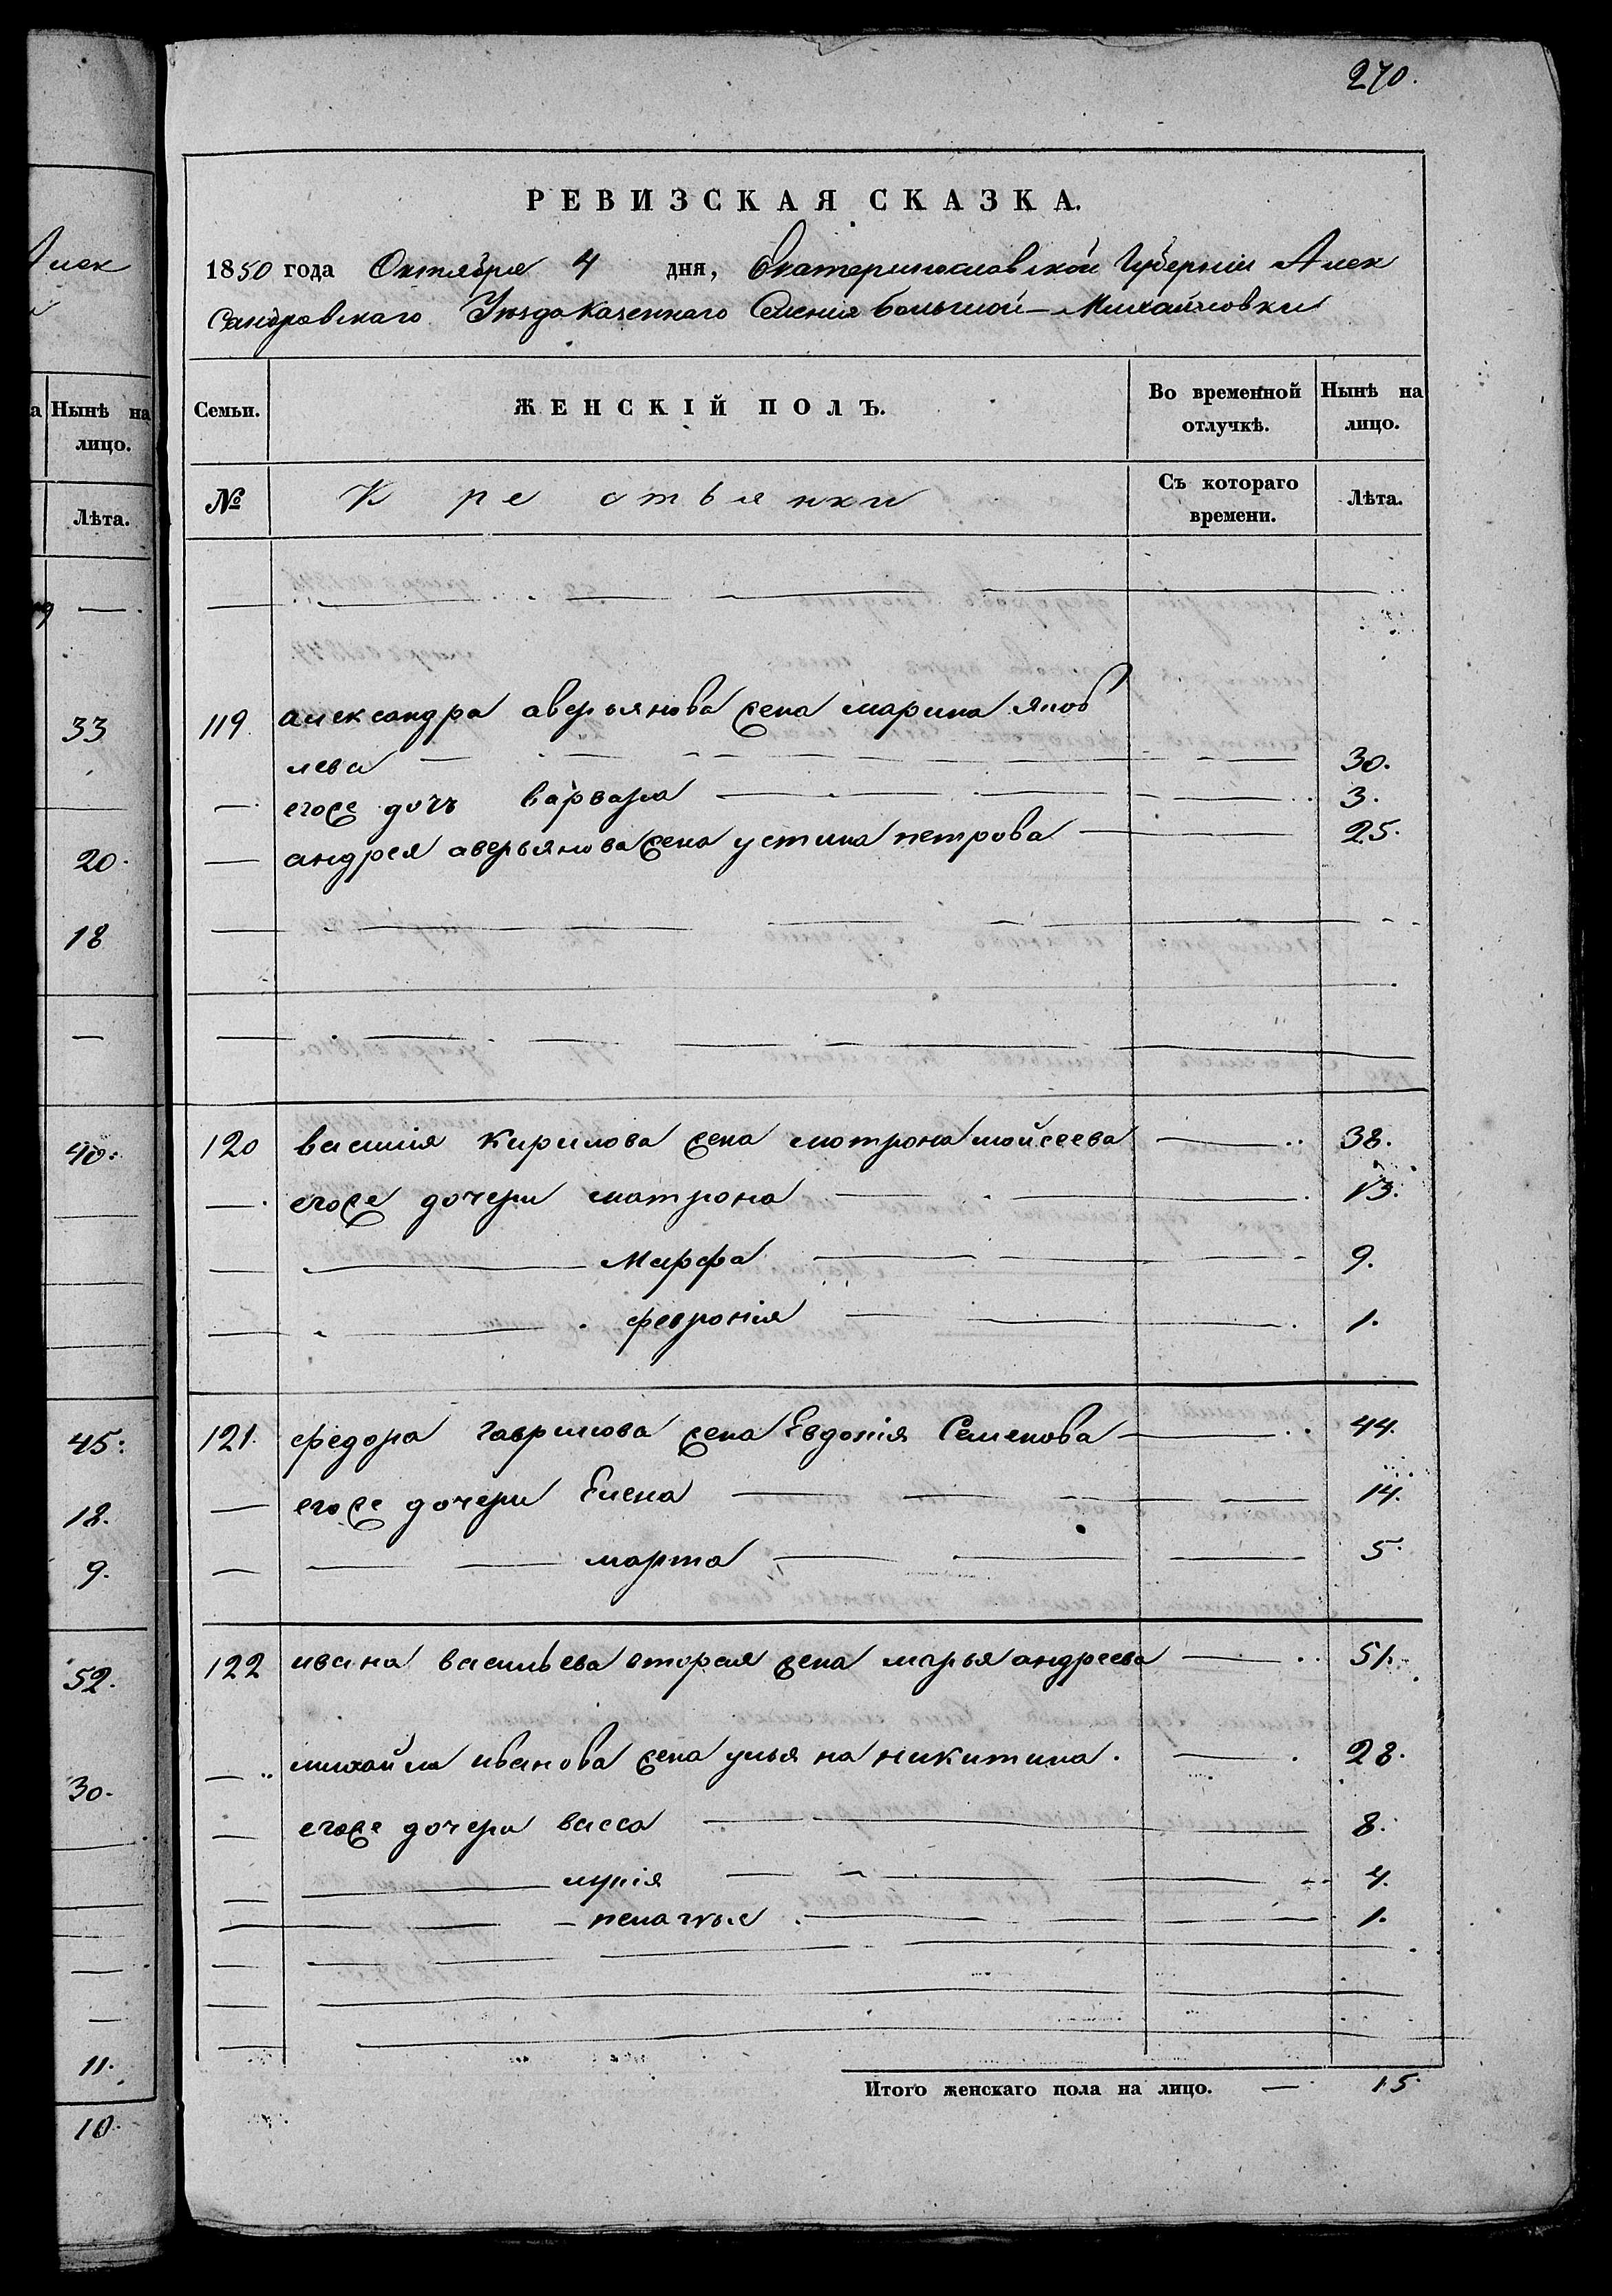 270.
РЕВИЗСКАЯ СКАЗКА.
1850 года Октября 4 дня, Екатеринославской Губерніи Алек
сандровскаго Уѣзда Казеннаго Селенія большой-Михайловки
Семьи. ЖЕНСКІЙ ПОЛЪ. Во временной отлучкѣ. Нынѣ на лицо.
№ Крестьянки Съ котораго времени. Лѣта.
119 александра аверьянова жена марина яков
лева 30.
— егоже дочь варвара 3.
— андрея аверьянова жена устина петрова 25.
120 василія кирилова жена мотрона мойсеева 38.
— егоже дочери матрона 13.
— Марфа 9.
— февронія 1.
121. федора гаврилова жена Евдокія Семенова 44.
— егоже дочери Елена 14.
— марта 5.
122 ивана васильева вторая жена марья андреева 51.
— михайла иванова жена ульяна никитина. 28.
— егоже дочери васса 8.
— лукія 4.
— пелагѣя 1.
Итого женскаго пола на лицо. — 15.
Алек
Нынѣ на
лицо.
Лѣта.
33
20.
18
—
40.
45.
18.
9.
52.
30.
11.
10.